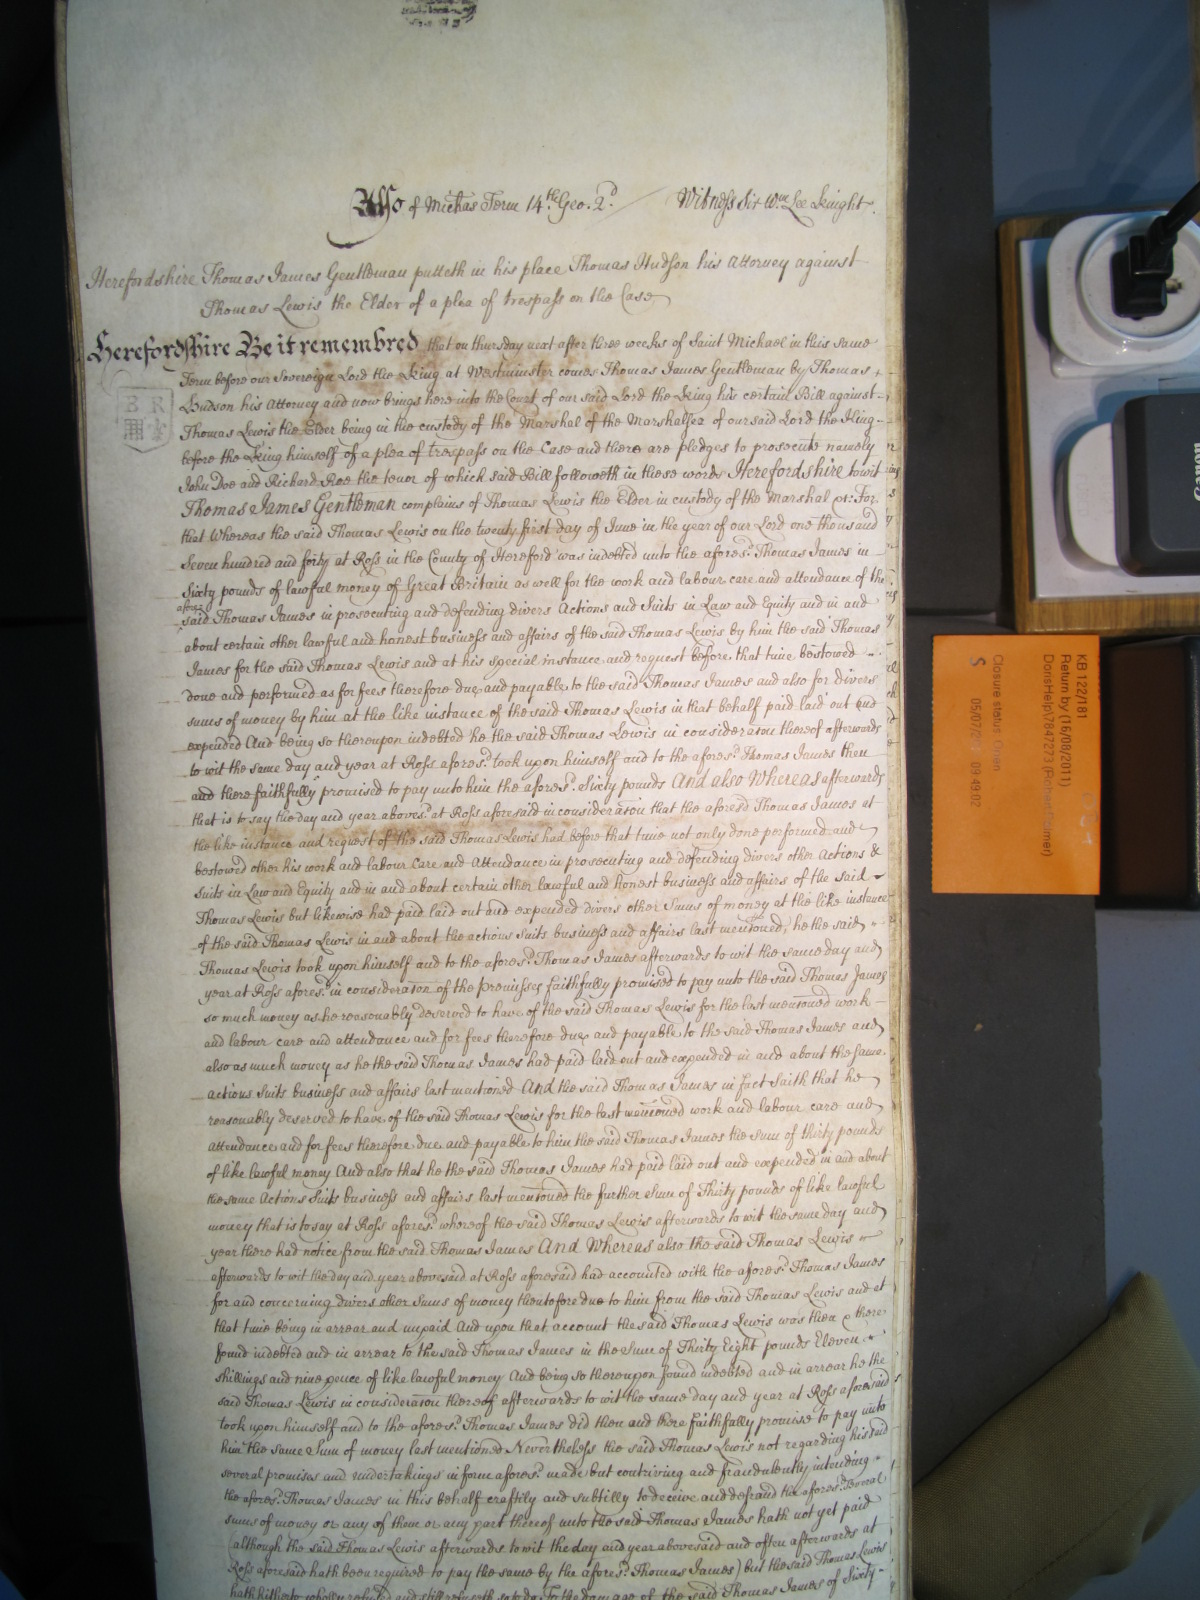 Also of Michas Term 14th Geo. 2d Witness Sir Wm Lee Knight
Herefordshire Thomas James Gentleman putteth in his place Thomas Hudson his Attorney against
Thomas Lewis the Elder of a plea of trespass on the Case
Herefordshire Be it remembred that on thursday next after three weeks of Saint Michael in this same
Term before our Sovereign Lord the King at Westminster comes Thomas James Gentleman by Thomas
Hudson his Attorney and now brings here into the Court of our said Lord the King his certain Bill against
B R
Thomas Lewis the Elder being in the custody of the Marshal of the Marshalsea of our said Lord the King
before the King himself of a plea of trespass on the Case and there are pledges to prosecute namely
John Doe and Richard Roe the tenor of which said Bill followeth in these words Herefordshire towit
Thomas James Gentleman complains of Thomas Lewis the Elder in custody of the Marshal &c: For
that Whereas the said Thomas Lewis on the twenty first day of June in the year of our Lord one thousand
Seven hundred and forty at Ross in the County of Hereford was indebted unto the afores.d Thomas James in
Sixty pounds of lawful money of Great Britain as well for the work and labour care and attendance of the
afore
said Thomas James in prosecuting and defending divers Actions and Suits in Law and Equity and in and
about certain other lawful and honest business and affairs of the said Thomas Lewis by him the said Thomas
James for the said Thomas Lewis and at his special instance and request before that time bestowed
done and performed as for fees therefore due and payable to the said Thomas James and also for divers
sums of money by him at the like instance of the said Thomas Lewis in that behalf paid laid out and
expended And being so thereupon indebted he the said Thomas Lewis in consideraton thereof afterwards
to wit the same day and year at Ross afores.d took upon himself and to the afores.d Thomas James then
and there faithfully promised to pay unto him the afores.d Sixty pounds And also Whereas afterwards
that is to say the day and year aboves.d at Ross aforesaid in consideraton that the afores'd Thomas James at
the like instance and request of the said Thomas Lewis had before that time not only done performed and
bestowed other his work and labour Care and Attendance in prosecuting and defending divers other Actions &
Suits in Law and Equity and in and about certain other lawful and honest business and affairs of the said
Thomas Lewis but likewise had paid laid out and expended divers other Sums of money at the like instance
of the said Thomas Lewis in and about the actions Suits business and affairs last mentoned, he the said
Thomas Lewis took upon himself and to the afores.d Thomas James afterwards to wit the same day and
year at Ross afores.d in consideraton of the premisses faithfully promised to pay unto the said Thomas James
so much money as he reasonably deserved to have of the said Thomas Lewis for the last mentoned work
and labour care and attendance and for fees therefore due and payable to the said Thomas James and
also as much money as he the said Thomas James had paid laid out and expended in and about the same
actions suits business and affairs last mentioned And the said Thomas James in fact saith that he
reasonably deserved to have of the said Thomas Lewis for the last mentoned work and labour care and
attendance and for fees therefore due and payable to him the said Thomas James the sum of thirty pounds
of like lawful money And also that he the said Thomas James had paid laid out and expended in and about
the same Actions Suits business and affairs last mentoned the further Sum of Thirty pounds of like lawful
money that is to say at Ross afores.d whereof the said Thomas Lewis afterwards to wit the same day and
year there had notice from the said Thomas James And Whereas also the said Thomas Lewis
afterwards to wit the day and year abovesaid at Ross aforesaid had accounted with the afores.d Thomas James
for and concerning divers other Sums of money thentofore due to him from the said Thomas Lewis and at
that time being in arrear and unpaid And upon that account the said Thomas Lewis was then & there
found indebted and in arrear to the said Thomas James in the Sum of Thirty Eight pounds Eleven
shillings and nine pence of like lawful money And being so thereupon found indebted and in arrear he the
said Thomas Lewis in consideraton thereof afterwards to wit the same day and year at Ross aforesaid
took upon himself and to the afores.d Thomas James did then and there faithfully promise to pay unto
him the same Sum of money last mentioned Nevertheless the said Thomas Lewis not regarding his said
several promises and undertakings in form afores.d made but contriving and fraudulently intending
the afores.d Thomas James in this behalf craftily and subtilly to deceive and defraud the afores.d Several
sums of money or any of them or any part thereof unto the said Thomas James hath not yet paid
(although the said Thomas Lewis afterwards to wit the day and year abovesaid and often afterwards at
Ross aforesaid hath been required to pay the same by the afores.d Thomas James) but the said Thomas Lewis
hath hitherto wholly refused and still refuseth so to do To the damage of the said Thomas James of Sixty
KB 122/181
Return by (16/08/2011)
Closure status: Open
S 05/07/ 09:49:02
Canon